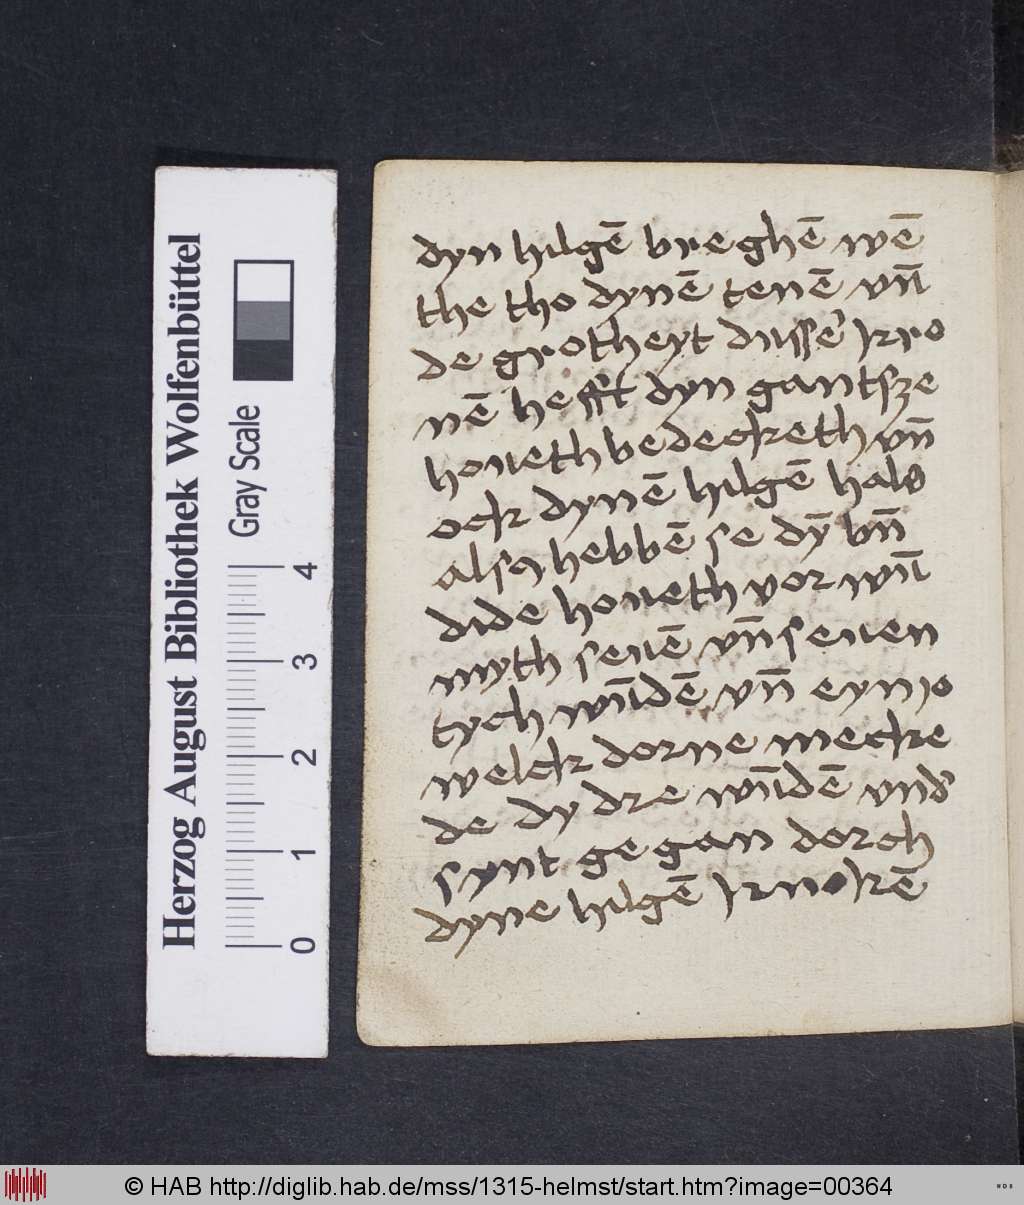 dyn hilgē breghē wē
the tho dynē tenē vn̄
de grotheyt dusser kro
nē hefft dyn gantsze
houeth bedecketh vn̄
ock dynē hilgē hals
also hebbē se dȳ bn̄
dide houeth vor wū
myth seuē vn̄ seuen
tych wūdē vn̄ eyn jo
welck dorne mecke
de dy dre wūdē vnd
synt gegan dorch
dyne hilgē knokē
Herzog August Bibliothek Wolfenbüttel
Gray Scale
0 1 2 3 4
© HAB http://diglib.hab.de/mss/1315-helmst/start.htm?image=00364